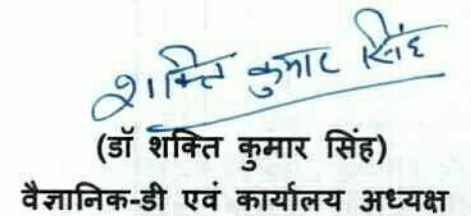 शक्ति कुमार सिंह
(डॉ शक्ति कुमार सिंह)
वैज्ञानिक-डी एवं कार्यालय अध्यक्ष